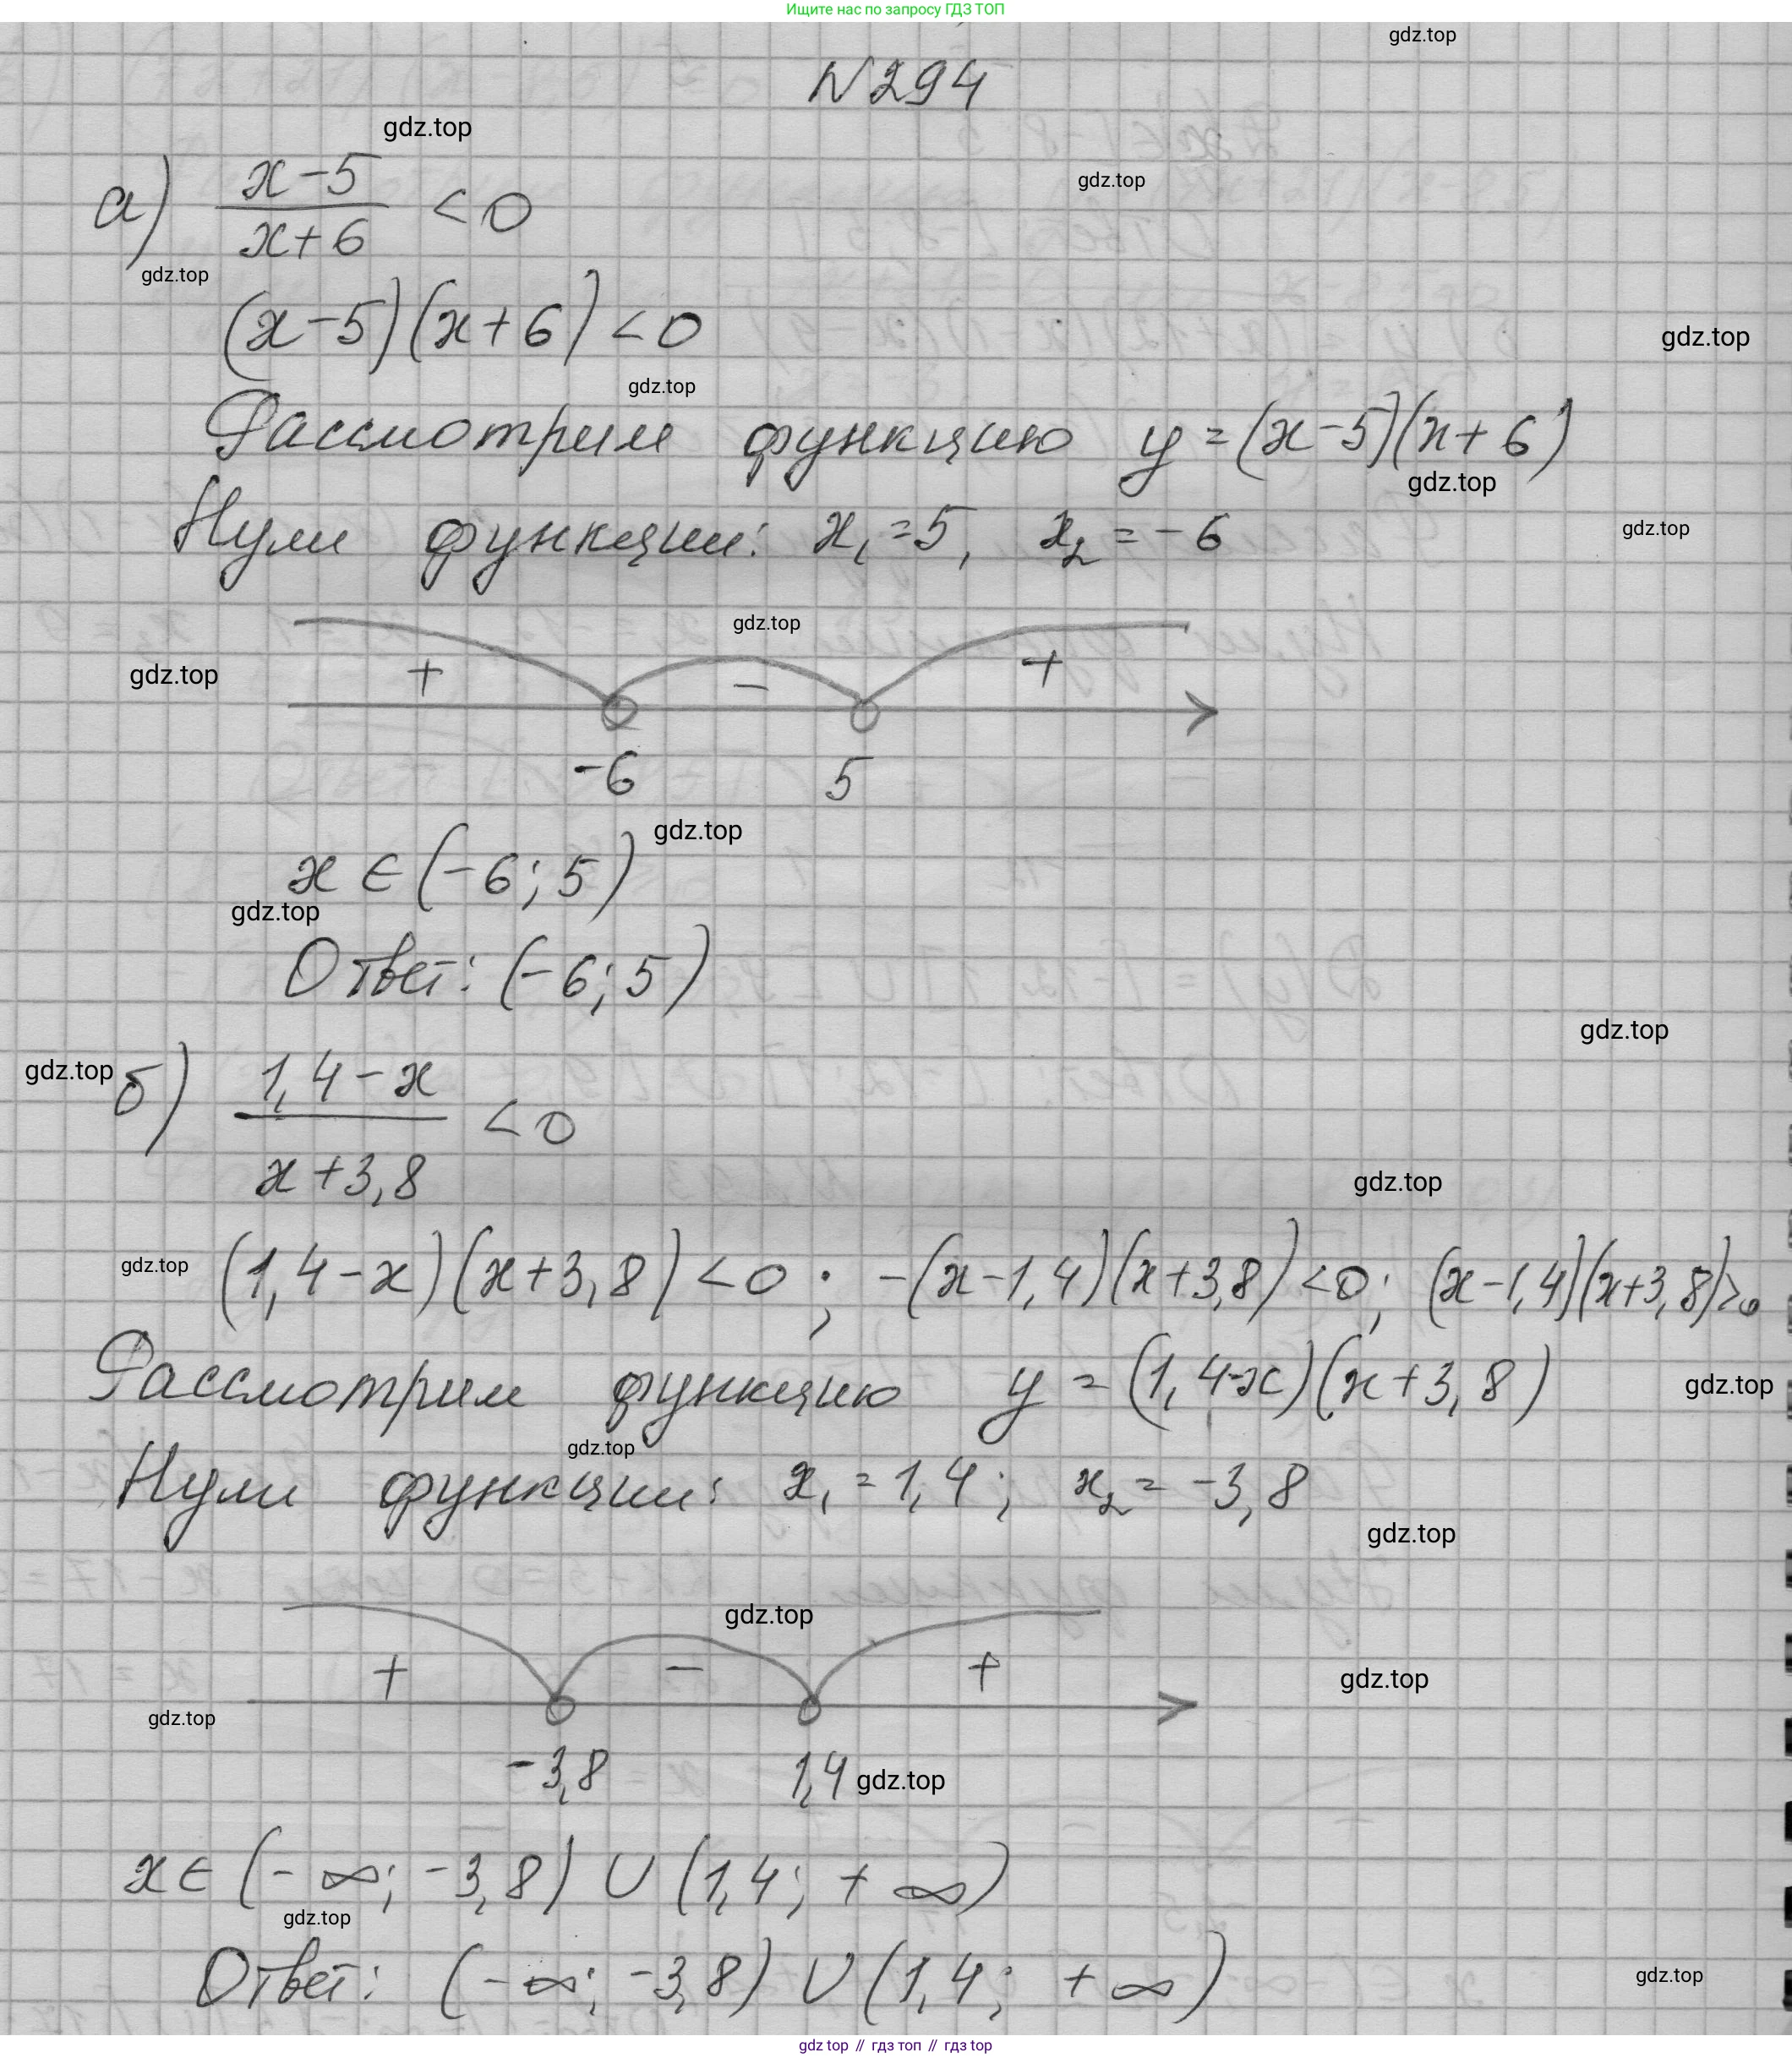 Ищите нас по запросу ГДЗ ТОП
gdz.top
N294
gdz.top
gdz.top
а) x-5/x+6 <0
gdz.top
(x-5)(x+6)<0
gdz.top
gdz.top
Рассмотрим функцию y=(x-5)(x+6)
gdz.top
Нули функции: x₁=5, x₂=-6
gdz.top
gdz.top
gdz.top
+ - +
-6 5
gdz.top
x∈(-6;5)
gdz.top
Ответ: (-6;5)
gdz.top
gdz.top
б) 1,4-x/x+3,8 <0
gdz.top
gdz.top
(1,4-x)(x+3,8)<0; -(x-1,4)(x+3,8)<0; (x-1,4)(x+3,8)>0
Рассмотрим функцию y=(1,4-x)(x+3,8)
gdz.top
gdz.top
Нули функции: x₁=1,4; x₂=-3,8
gdz.top
gdz.top
+ - +
gdz.top
gdz.top
-3,8 1,4
gdz.top
x∈(-∞;-3,8)∪(1,4;+∞)
gdz.top
Ответ: (-∞;-3,8)∪(1,4;+∞)
gdz.top
gdz top // гдз топ // gdz top